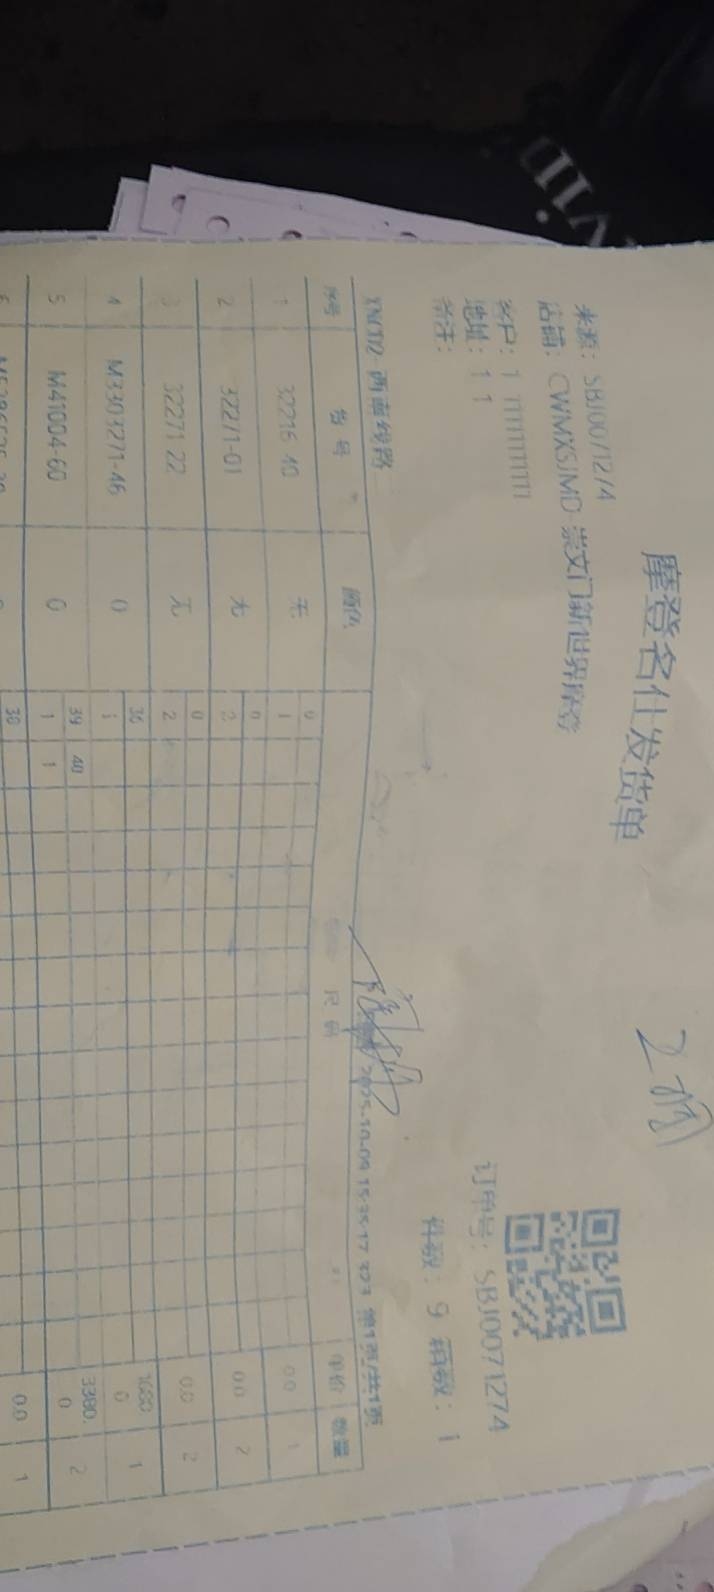 摩登名仕发货单
订单号: SBJ0071274
店铺: CWMXSJMD 崇文门新世界摩登
客户: 1
件数: 9 箱数: 1
地址: 1 1
备注:
西南线路 2025-10-09 15:35:17 第1页/共1页
序号 货号 颜色 尺码 单价 数量
0
1 32216-40 无 1 0.0 1
0
2 32271-01 无 2 0.0 2
0
3 32271-22 无 2 0.0 2
36
4 M3303271-46 0 1 1680 0 1
39 40
5 M41004-60 0 1 1 3380. 0 2
38
0.0 1